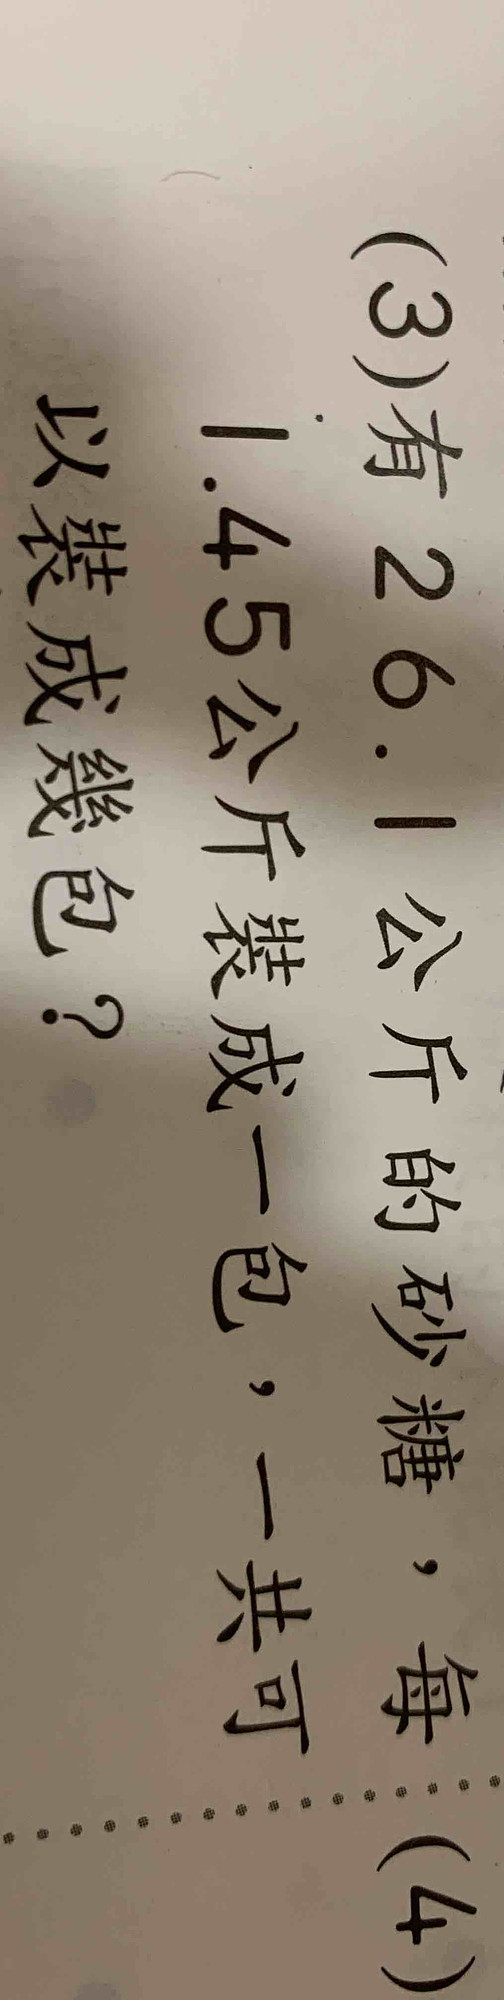 (3)有26.1公斤的砂糖，每
1.45公斤裝成一包，一共可
以裝成幾包？
(4)